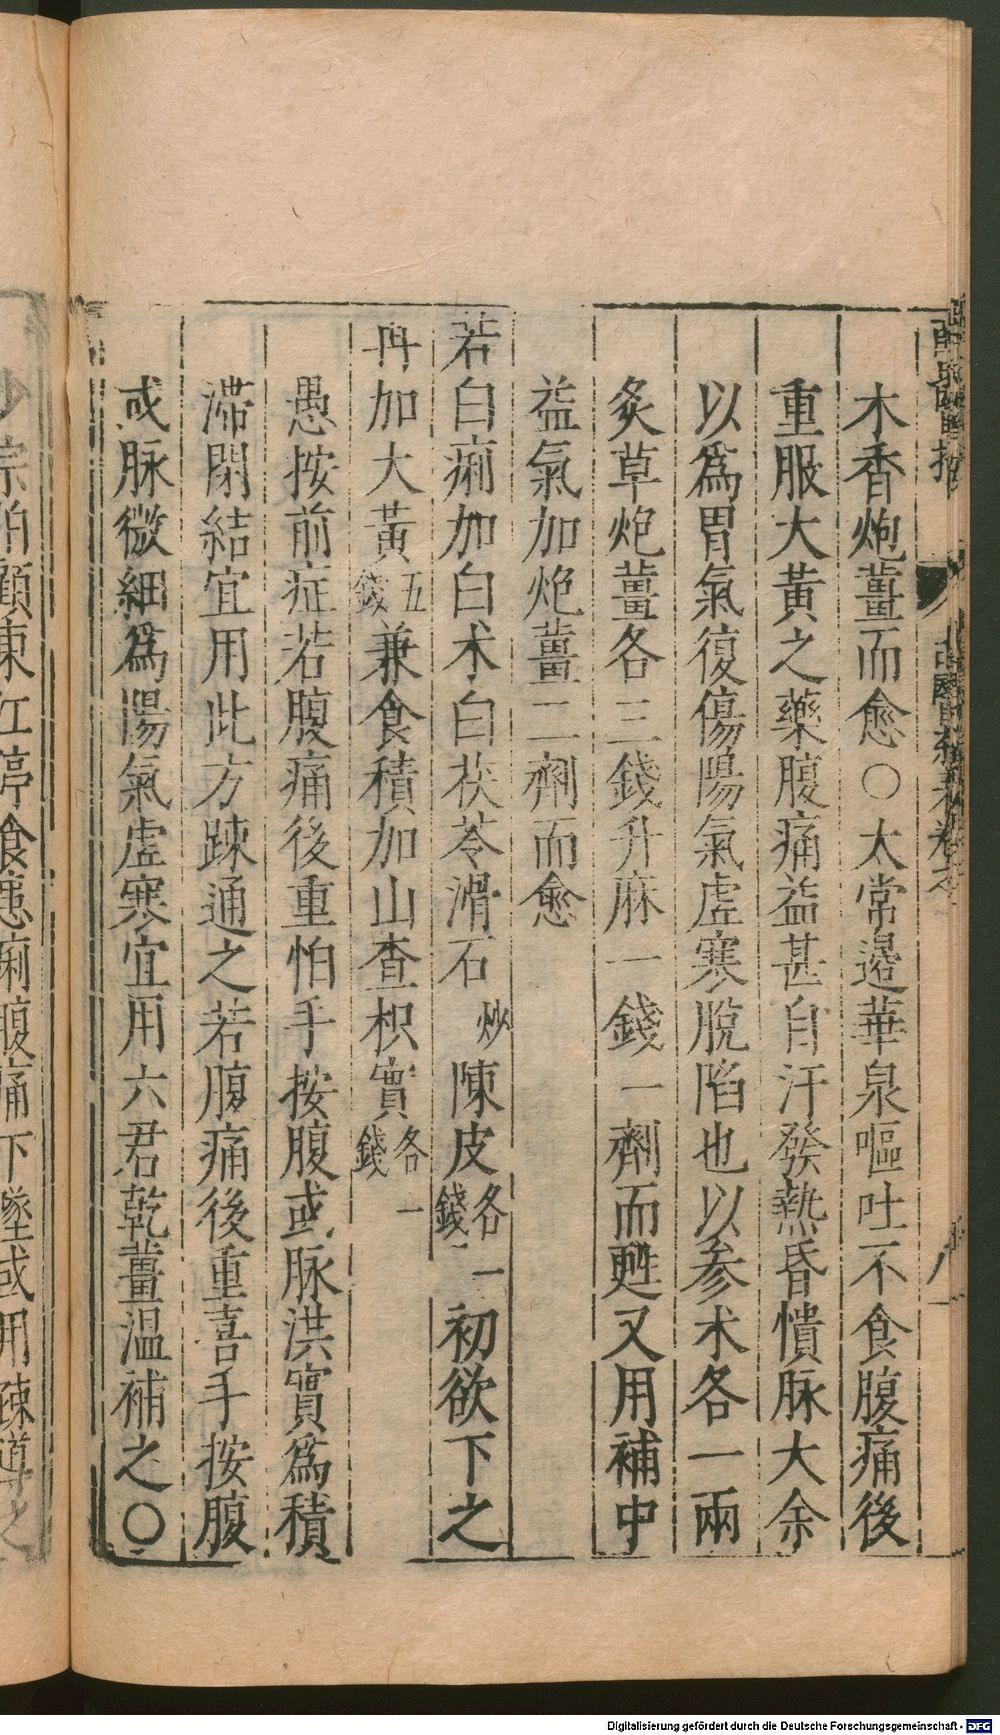 木香炮薑而愈○太常邊華泉嘔吐不食腹痛後
重服大黃之藥腹痛益甚自汗發熱昏憒脉大余
以爲胃氣復傷陽氣虛寒脫陷也以參术各一兩
炙草炮薑各三錢升麻一錢一劑而甦又用補中
益氣加炮薑二劑而愈
若白痢加白术白茯苓滑石炒陳皮各一錢初欲下之
再加大黃五錢兼食積加山查枳實各一錢
愚按前症若腹痛後重怕手按腹或脉洪實爲積
滯閉結宜用此方疎通之若腹痛後重喜手按腹
或脉微細爲陽氣虛寒宜用六君乾薑温補之○
宗伯顧東江停食患痢腹痛下墜或用疎導之
Digitalisierung gefördert durch die Deutsche Forschungsgemeinschaft - DFG